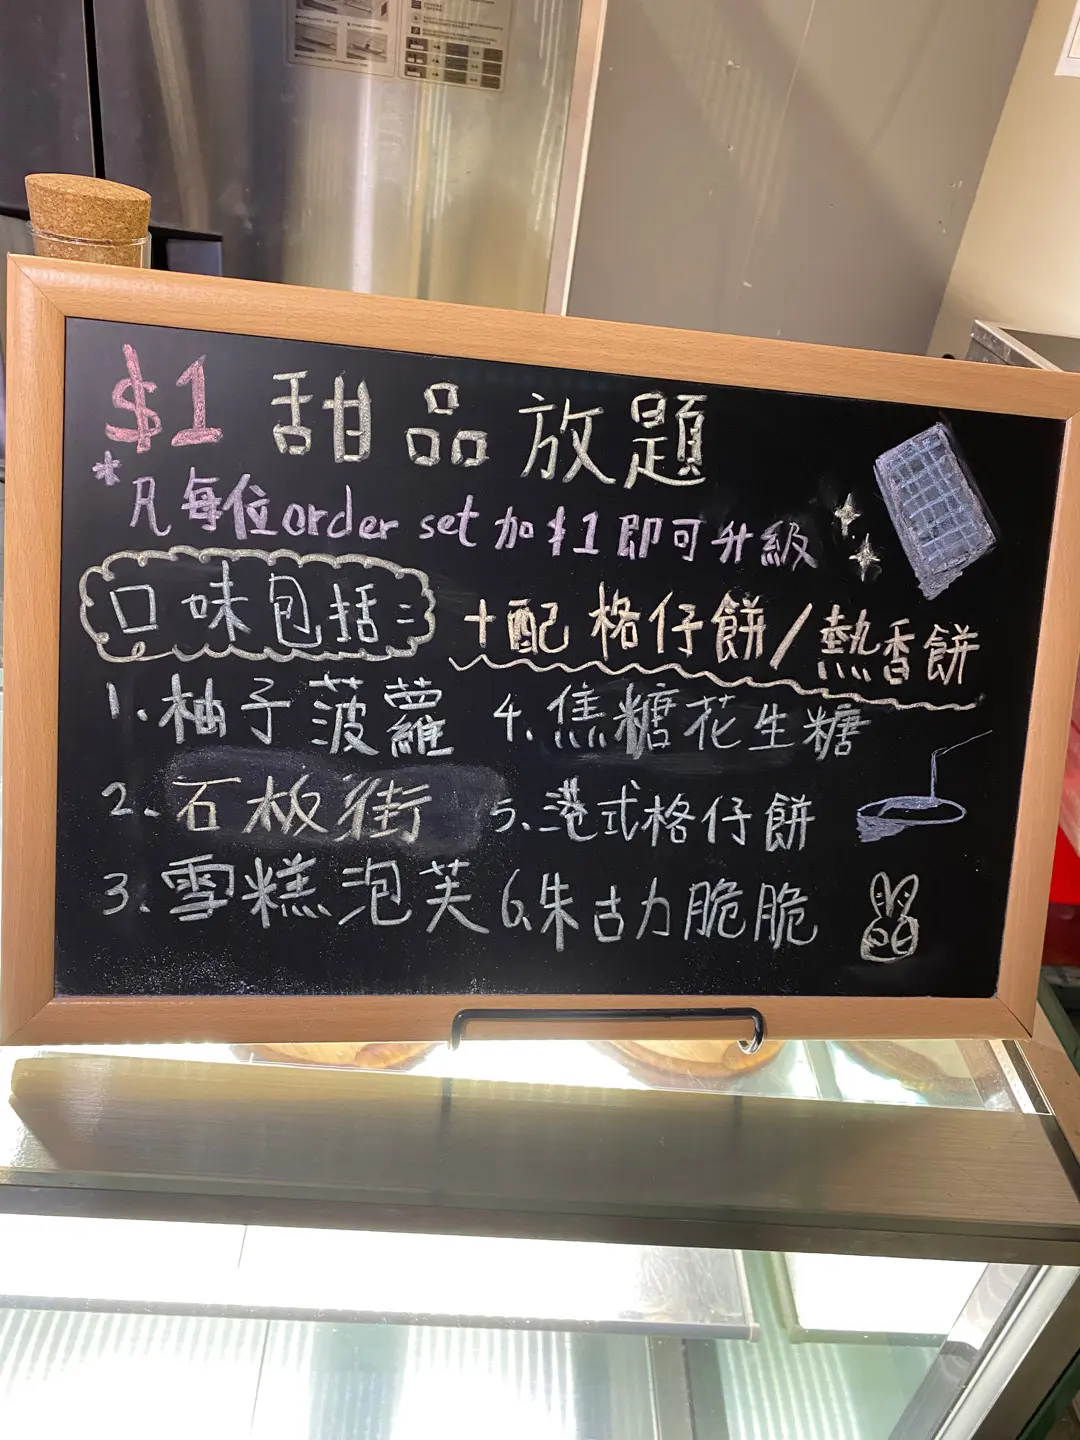 $1 甜品放題
*凡每位order set 加$1即可升級
口味包括:
+配 格仔餅/熱香餅
1.柚子菠蘿
4.焦糖花生糖
2.石板街
5.港式格仔餅
3.雪糕泡芙
6.朱古力脆脆